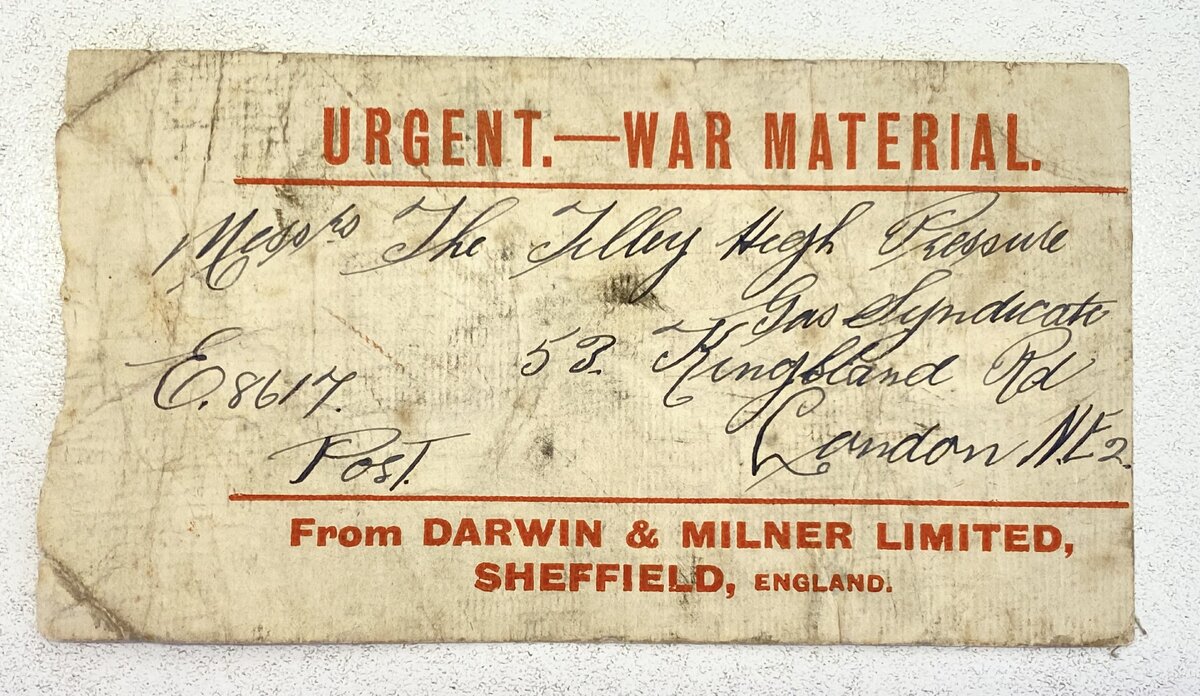 URGENT.—WAR MATERIAL.
Messrs The Tilley High Pressure
Gas Syndicate
53. Kingsland Rd
E.8617.
London N.E2.
Post.
From DARWIN & MILNER LIMITED,
SHEFFIELD, ENGLAND.